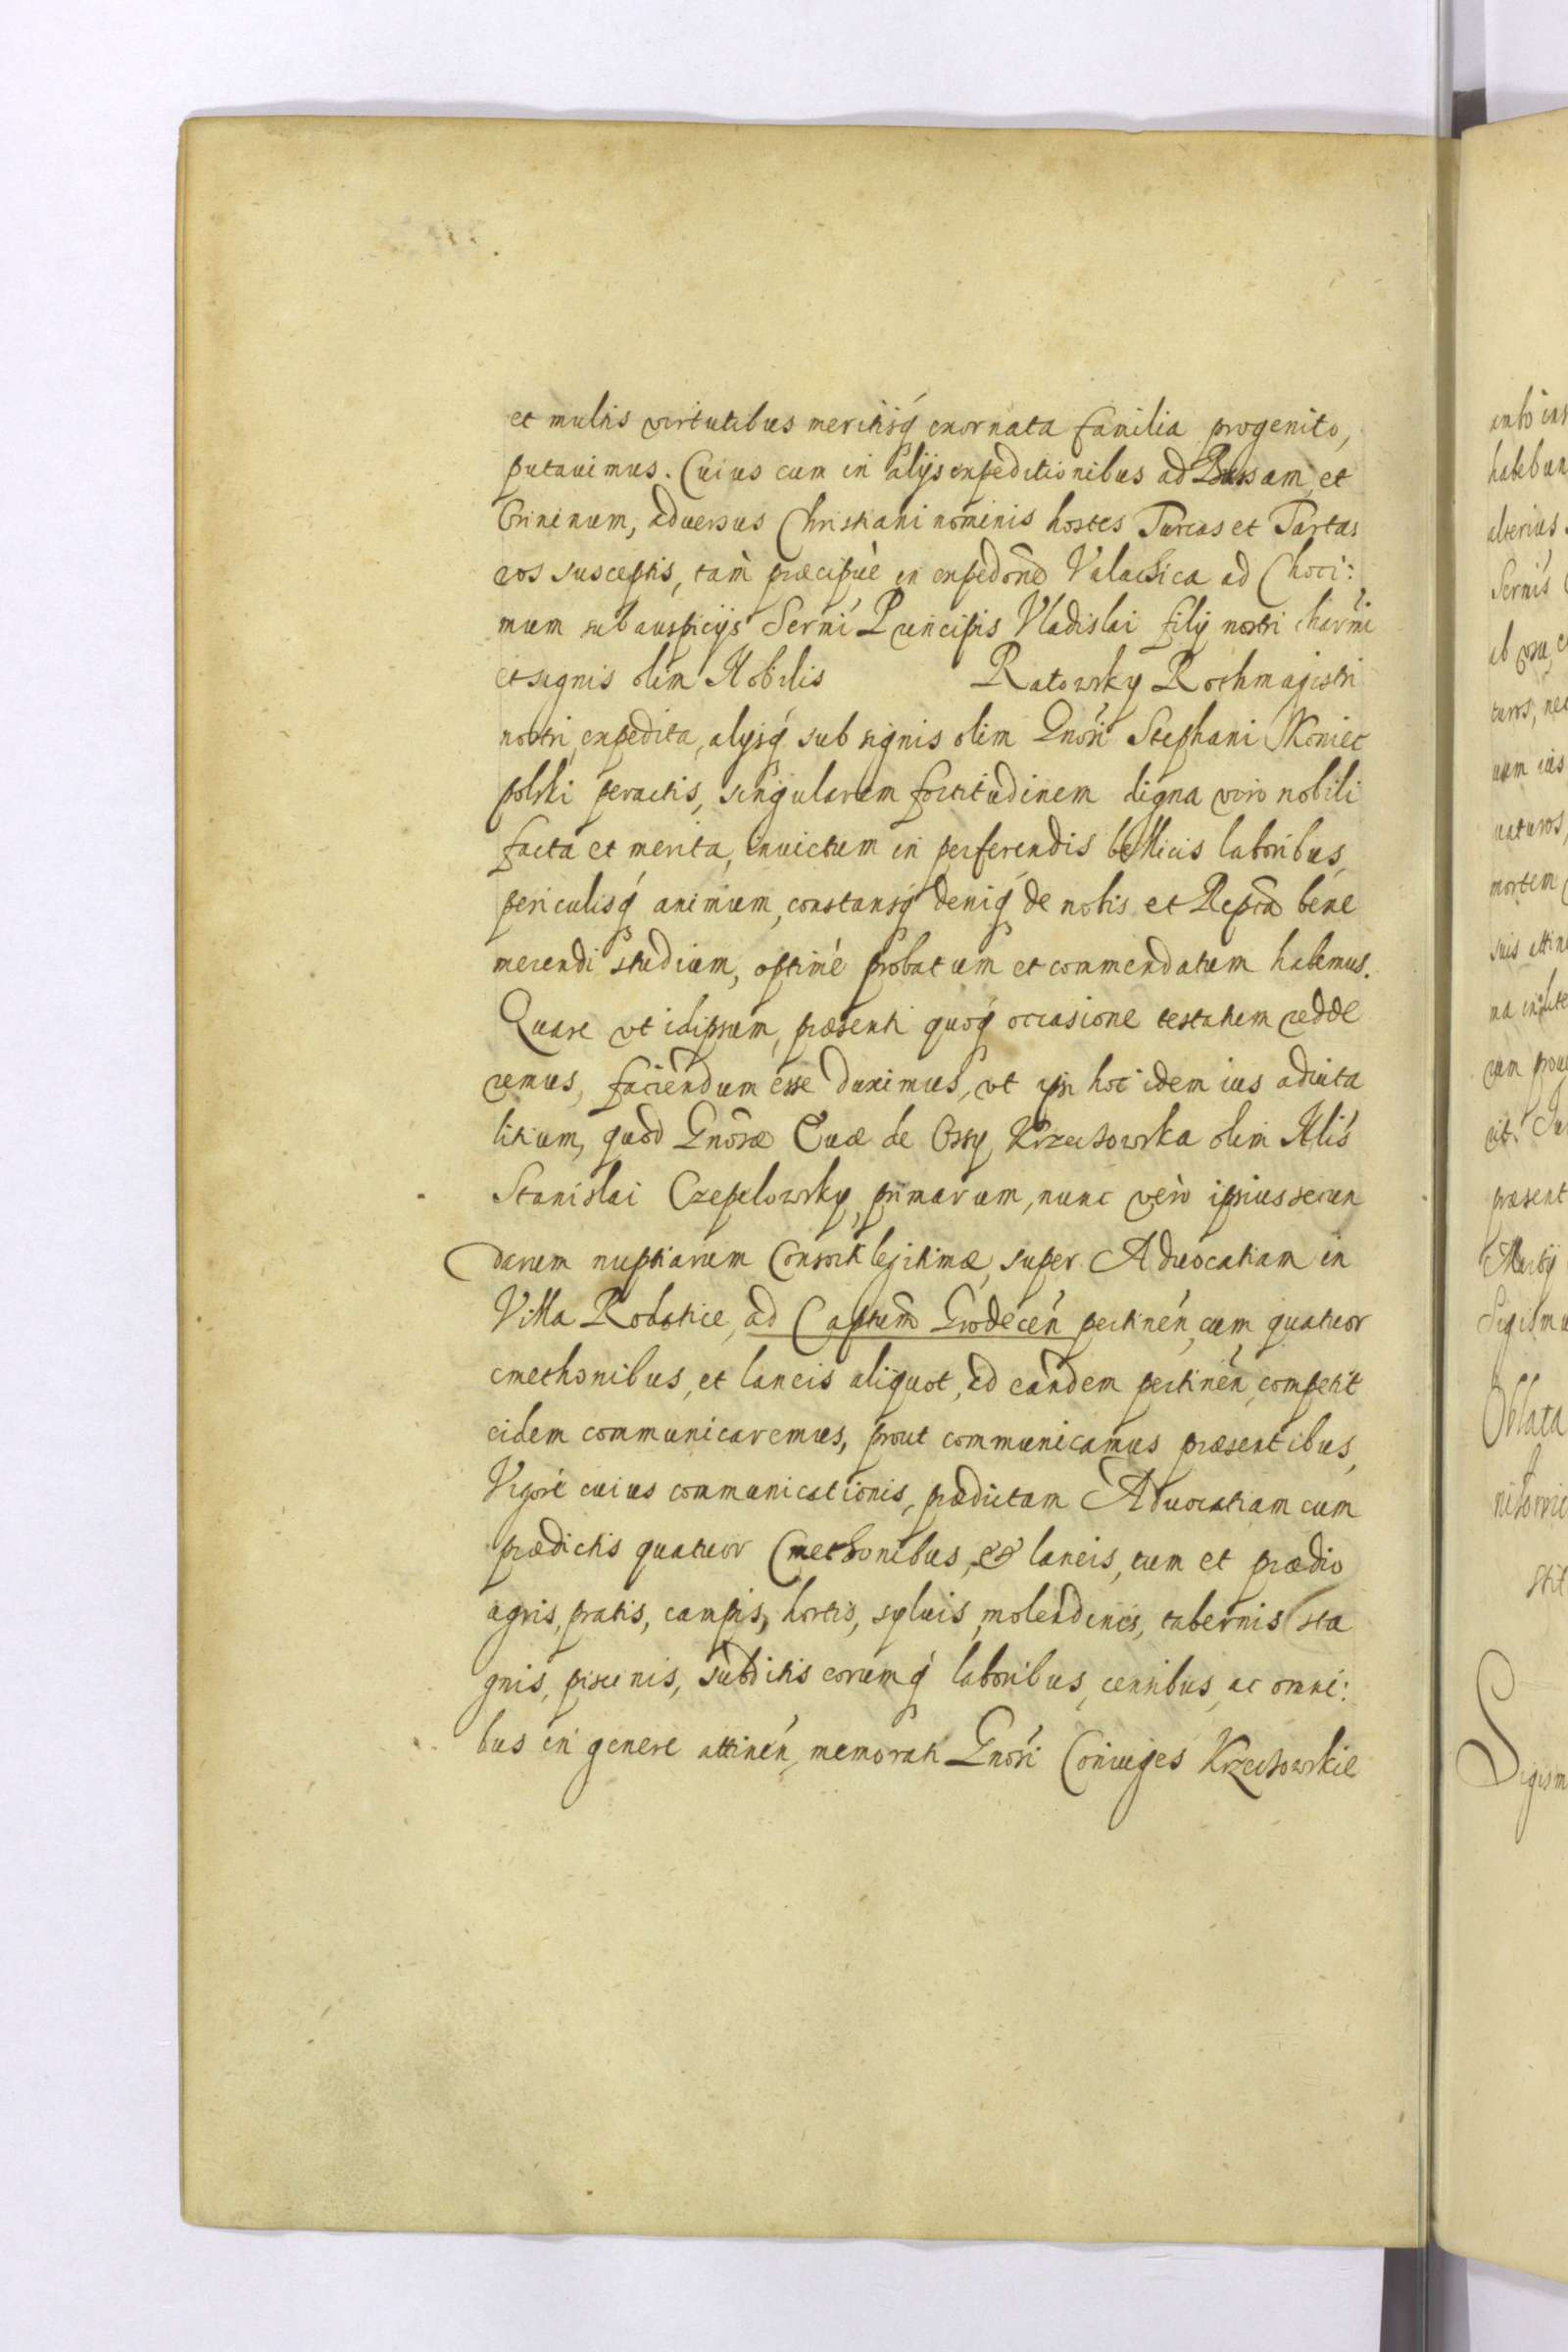 et multis virtutibus meritisq́ exornata familia progenito,
putauimus. Cuius cum in alijs expeditionibus ad Bussam, et
Orininum, aduersus Christiani nominis hostes Turcas et Tarta
ros susceptis, tam̀ præcipuè in expedōne Valachica ad Choci:
mum sub auspicijs Serńi Principis Vladislai filij nostri charḿi
et signis olim Nobilis Ratowsky Rothmagistri
nostri, expedita, alijsq́ sub signis olim Gnośi Stephani Koniec
polski peractis, singularem fortitudinem digna viro nobili
facta et merita, inuictum in perferendis bellicis laboribus,
periculisq́ animum, constansq́ deniq́ de nobis et Repcā bene
merendi studium, optimè probatum et commendatum habemus.
Quare vt idipsum, præsenti quoq́ occasione testatum redde
remus, faciendum esse duximus, vt ipsi hoc idem ius aduita
litium, quod Gnosæ Euæ de Ossy Krzechowska olim Nlis
Stanislai Czepelowsky, primarum, nunc verò ipsius secun
darum nuptiarum Consorti legitimæ, super Aduocatiam in
Villa Rodatice, ad Captum Grodecen pertinen, cum quatuor
cmethonibus, et laneis aliquot, ad eandem pertinen, competit
eidem communicaremus, prout communicamus præsentibus,
Vigore cuius communicationis, prædictam Aduocatiam cum
prædictis quatuor Cmethonibus, et laneis, tum et prædio
agris, pratis, campis, hortis, syluis, molendinis, tabernis sta
gnis, piscinis, subditis eorumq́ laboribus, censibus, ac omni:
bus in genere attinen, memorati Gnosi Coniuges Krzechowskie
ab vsu
mortem
præsent
Oblata